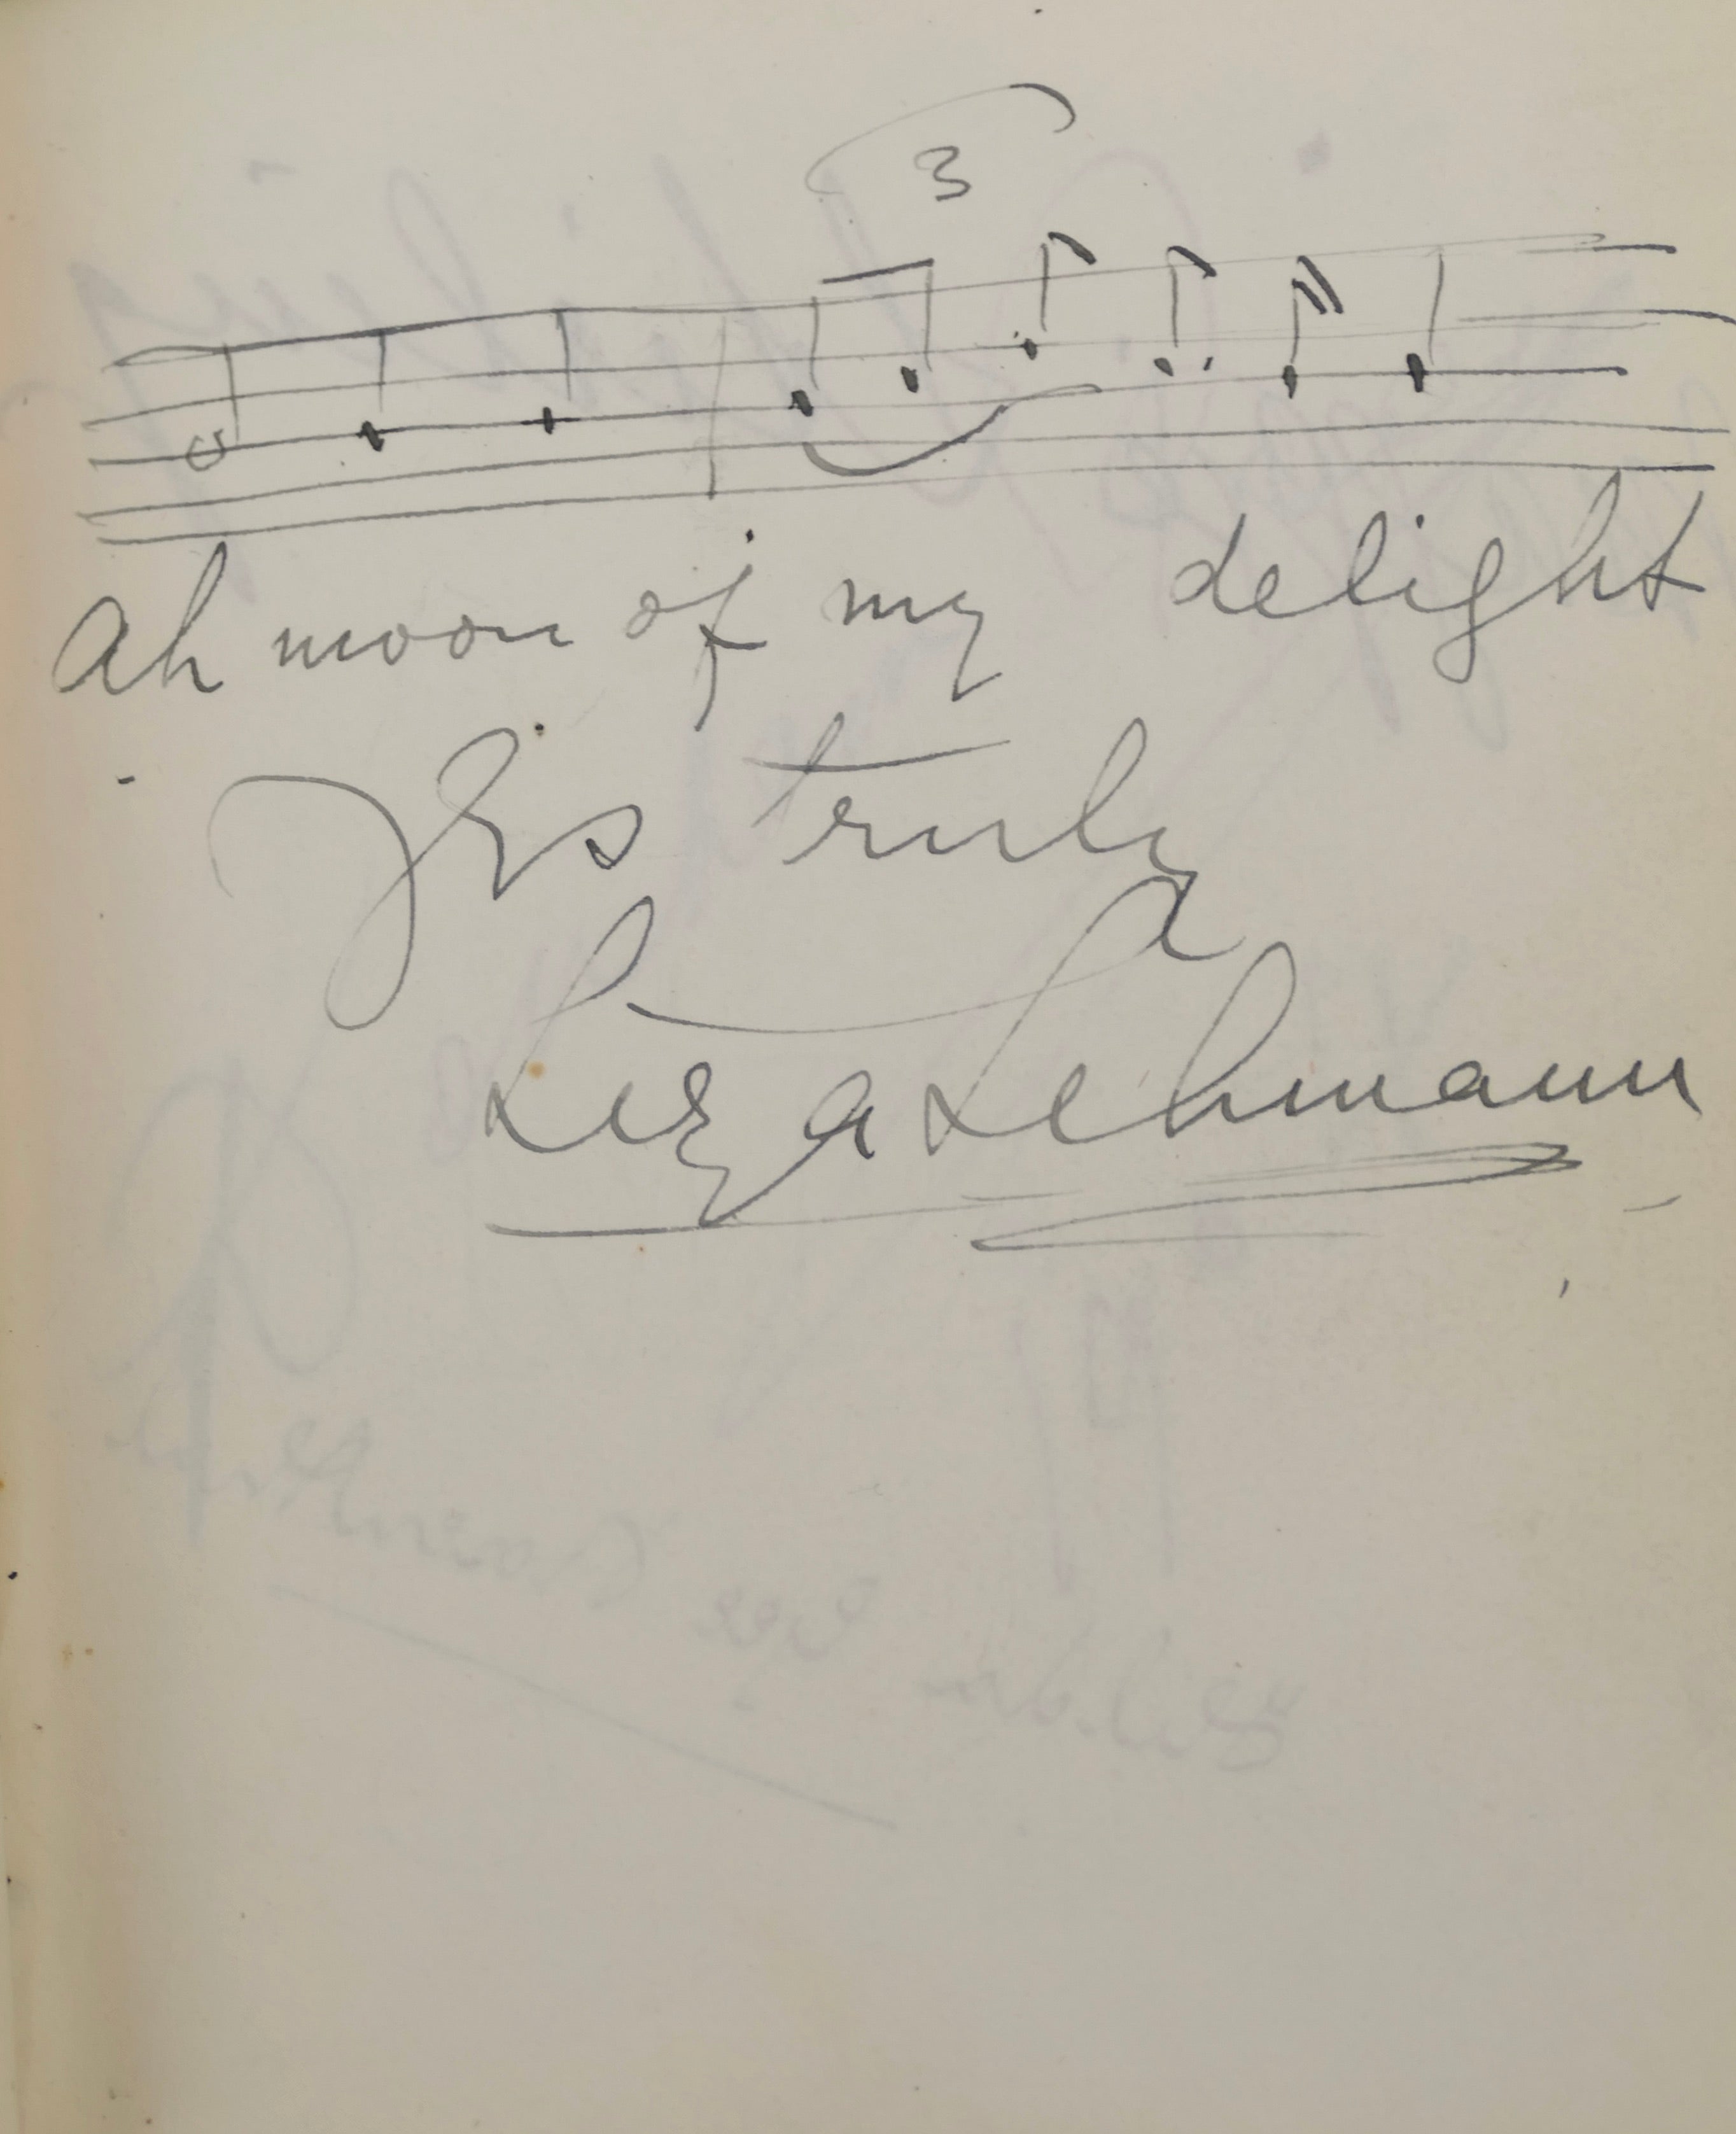 3
Ah moon of my delight
Yrs truly
Liza Lehmann